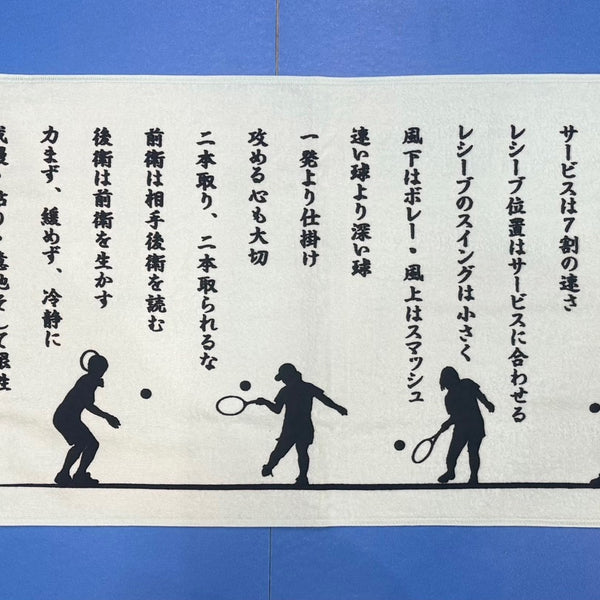 サービスは7割の速さ
レシーブ位置はサービスに合わせる
レシーブのスイングは小さく
風下はボレー・風上はスマッシュ
速い球より深い球
一発より仕掛け
攻める心も大切
二本取り、二本取られるな
前衛は相手後衛を読む
後衛は前衛を生かす
力まず、緩めず、冷静に
我慢・粘り・意地そして根性